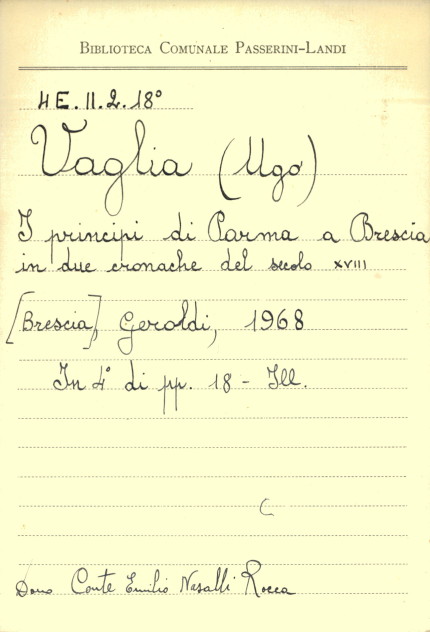 BIBLIOTECA COMUNALE PASSERINI-LANDI
4 E. II. 2. 18°
Vaglia (Ugo)
I principi di Parma a Brescia
in due cronache del secolo XVIII
[Brescia], Geroldi, 1968
In 4° di pp. 18 - Ill.
C
Dono Conte Emilio Nasalli Rocca